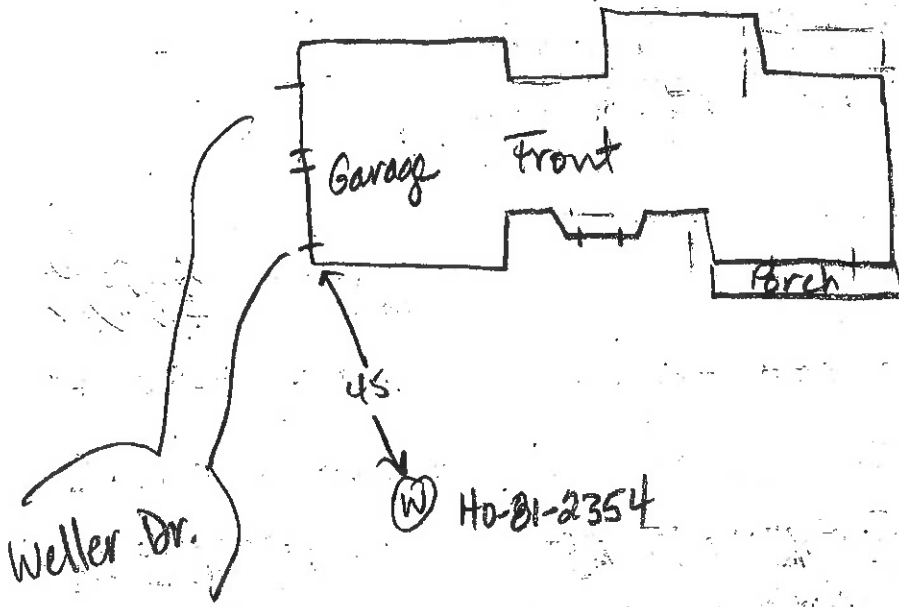 Garage
Front
Porch
45
W
Ho-81-2354
Weller Dr.